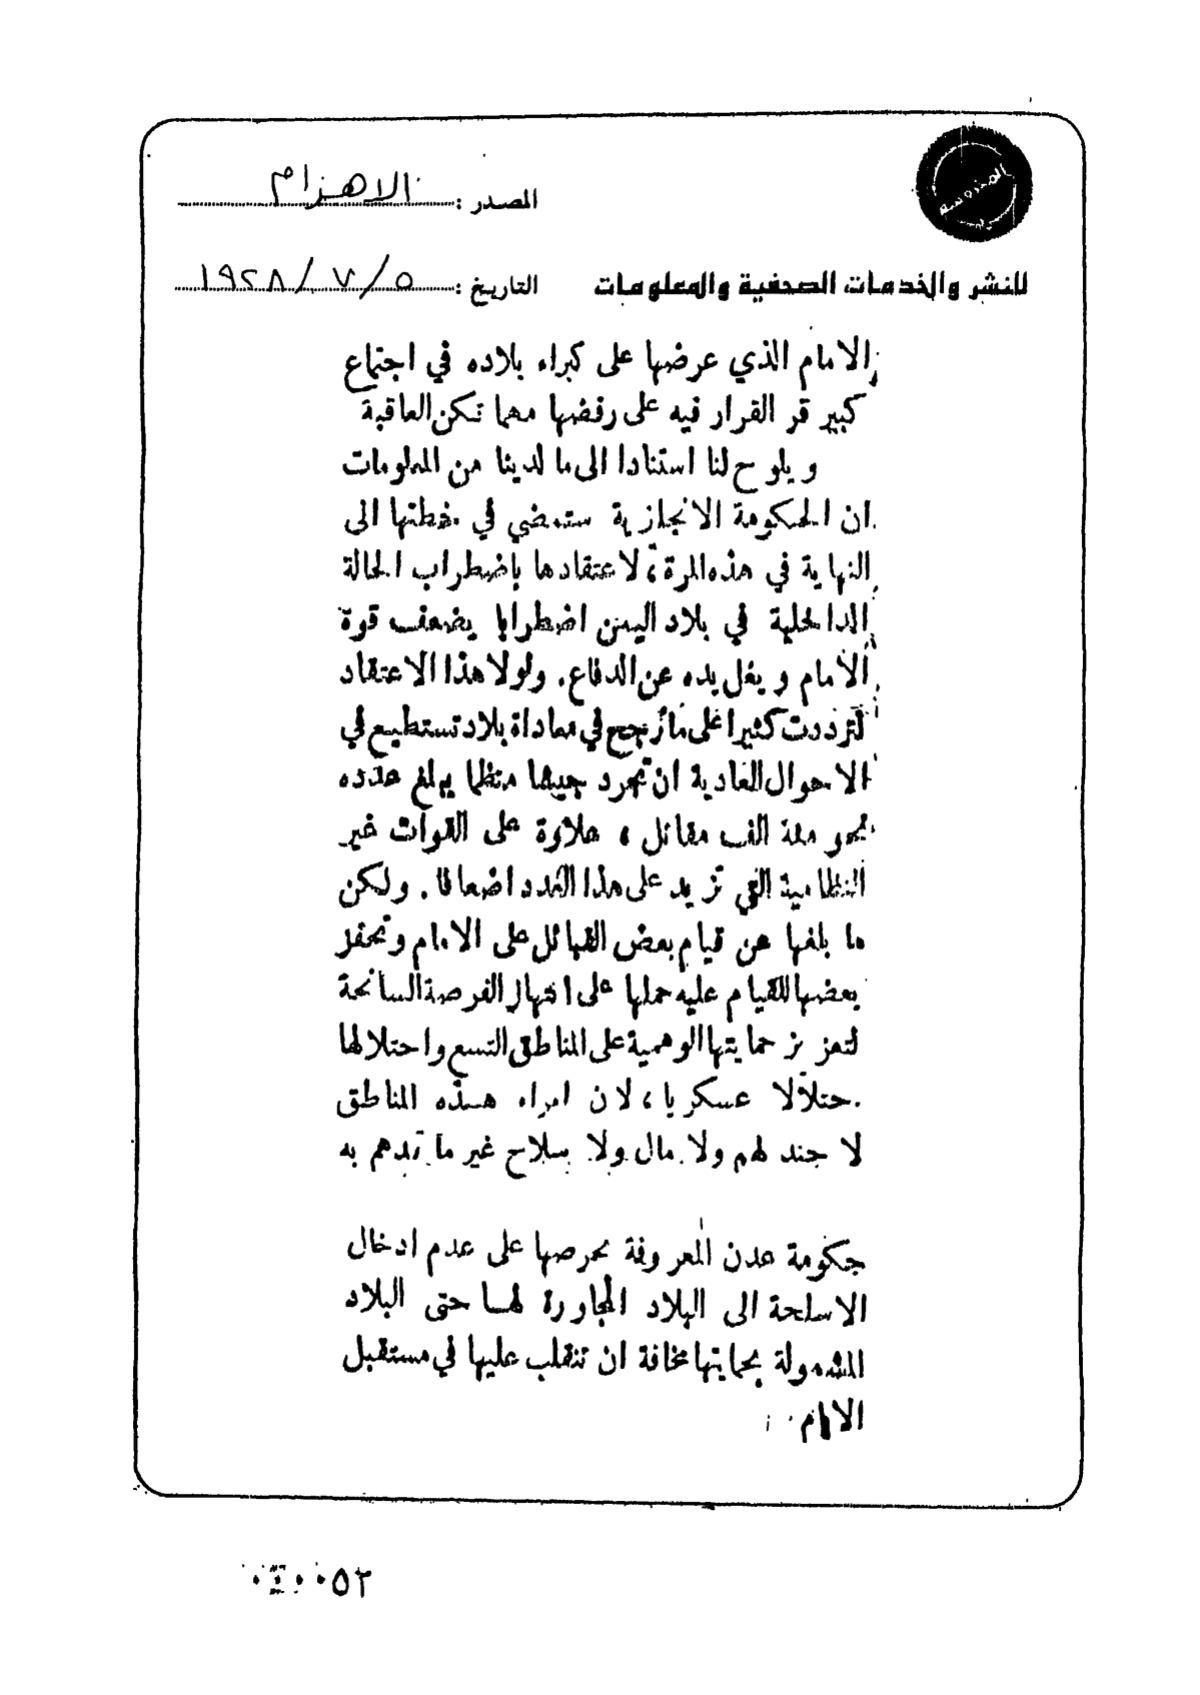 المصدر : الاهرام
المحروسة
للنشر والخدمات الصحفية والمعلومات
التاريخ : ٥/ ٧/ ١٩٢٨
الامام الذي عرضها على كبراء بلاده في اجتماع
كبير قر القرار فيه على رفضها مهما تكن العاقبة
ويلوح لنا استنادا الى ما لدينا من المعلومات
ان الحكومة الانجازية ستمضي في خطتها الى
النهاية في هذه المرة، لاعتقادها باضطراب الحالة
الداخلية في بلاد اليمن اضطرابا يضعف قوة
الامام ويغل يده عن الدفاع. ولولا هذا الاعتقاد
لترددت كثيرا على ما نرجح في معاداة بلاد تستطيع في
الاحوال العادية ان تجرد جيشا منظما يبلغ عدده
نحو مئة الف مقاتل ، علاوة على القوات غير
النظامية التي تزيد على هذا العدد اضعافا. ولكن
ما بلغها عن قيام بعض القبائل على الامام وتحفز
بعضها للقيام عليه حملها على انتهاز الفرصة السانحة
لتعزيز حمايتها الوهمية على المناطق التسع واحتلالها
حتلالا عسكريا ، لان امراء هذه المناطق
لا جند لهم ولا مال ولا سلاح غير ما تمدهم به
حكومة عدن المعروفة بحرصها على عدم ادخال
الاسلحة الى البلاد المجاورة لها حتى البلاد
المشمولة بحمايتها مخافة ان تنقلب عليها في مستقبل
الايام